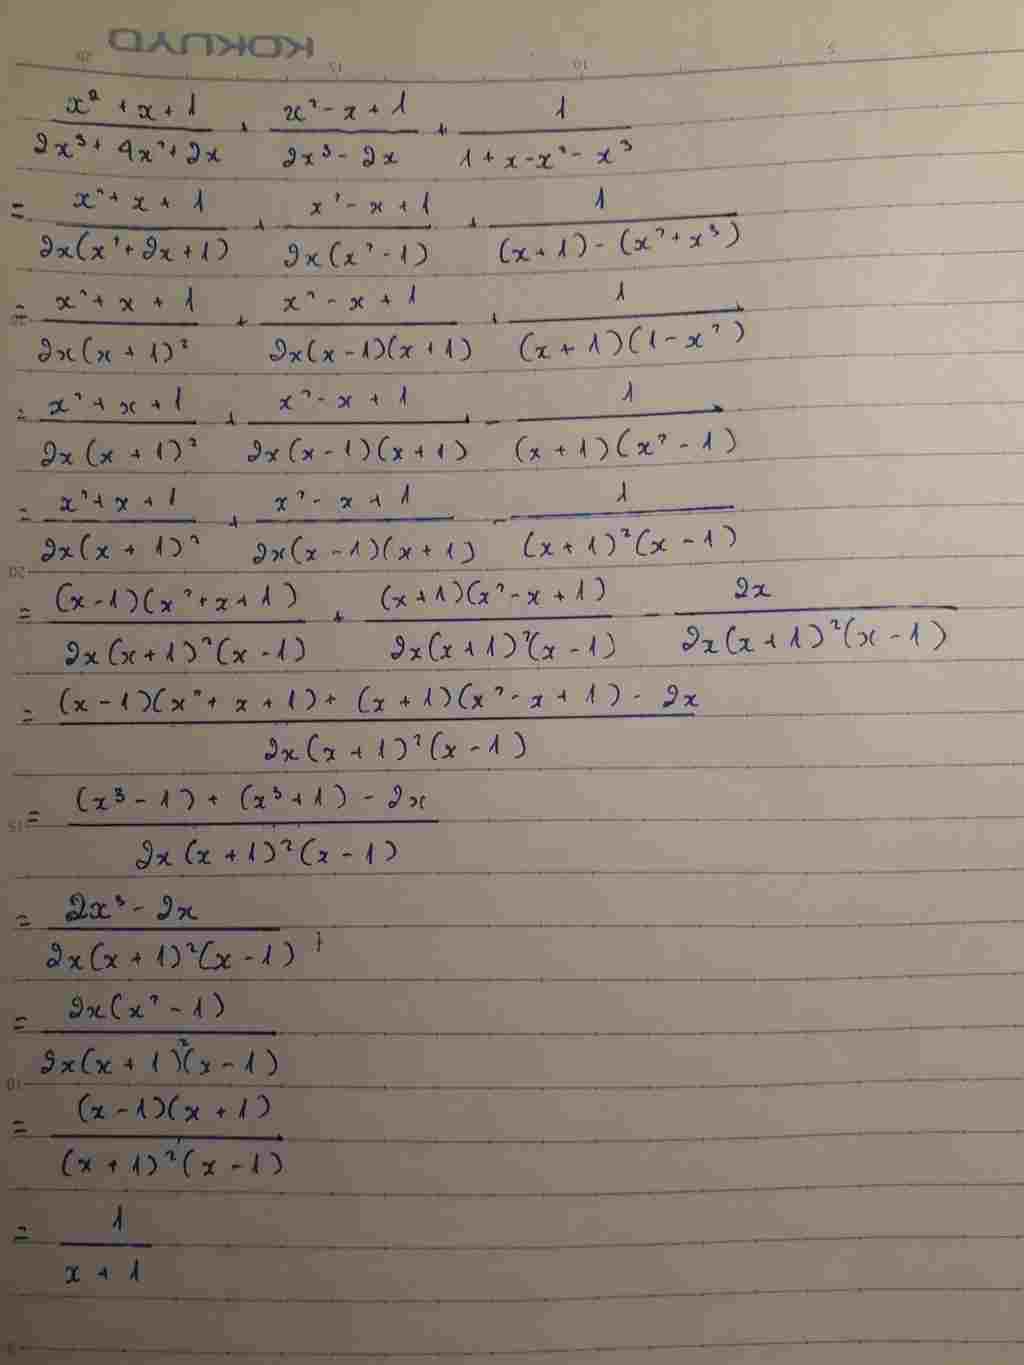 KOKUYO
20 15 10 5
x² + x + 1 / 2x³ + 4x² + 2x + x² - x + 1 / 2x³ - 2x + 1 / 1 + x - x² - x³
= x² + x + 1 / 2x(x² + 2x + 1) + x² - x + 1 / 2x(x² - 1) + 1 / (x + 1) - (x² + x³)
= x² + x + 1 / 2x(x + 1)² + x² - x + 1 / 2x(x - 1)(x + 1) + 1 / (x + 1)(1 - x²)
= x² + x + 1 / 2x(x + 1)² + x² - x + 1 / 2x(x - 1)(x + 1) - 1 / (x + 1)(x² - 1)
= x² + x + 1 / 2x(x + 1)² + x² - x + 1 / 2x(x - 1)(x + 1) - 1 / (x + 1)²(x - 1)
20
= (x - 1)(x² + x + 1) / 2x(x + 1)²(x - 1) + (x + 1)(x² - x + 1) / 2x(x + 1)²(x - 1) - 2x / 2x(x + 1)²(x - 1)
= (x - 1)(x² + x + 1) + (x + 1)(x² - x + 1) - 2x / 2x(x + 1)²(x - 1)
15
= (x³ - 1) + (x³ + 1) - 2x / 2x(x + 1)²(x - 1)
= 2x³ - 2x / 2x(x + 1)²(x - 1)
= 2x(x² - 1) / 2x(x + 1)²(x - 1)
10
= (x - 1)(x + 1) / (x + 1)²(x - 1)
= 1 / x + 1